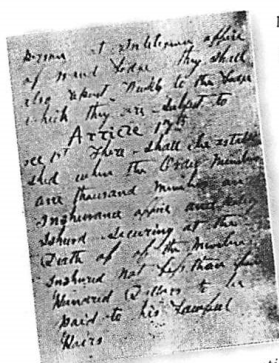 at
office
of said Lodge They shall
also report to the Lodge
which they are subject to
Article 17th
sec 1st There shall be establi
shed when the Order Numbers
one thousand members an
Inshurance office and policy
Ishued securing at the
Death of of the Member
Inshured Not less than
Hundred Dollars to be
paid to his Lawful
Hairs